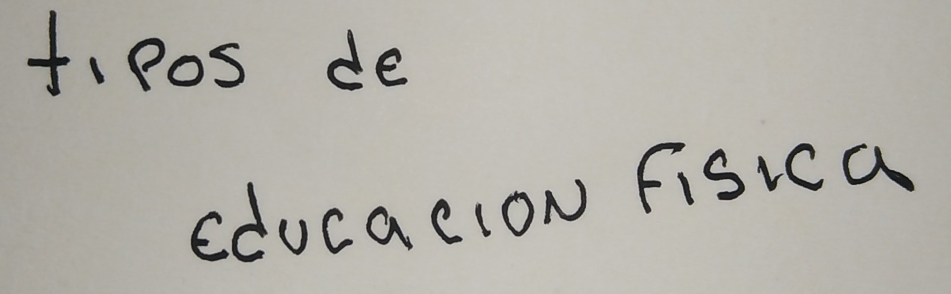 tipos de
educacion Fisica